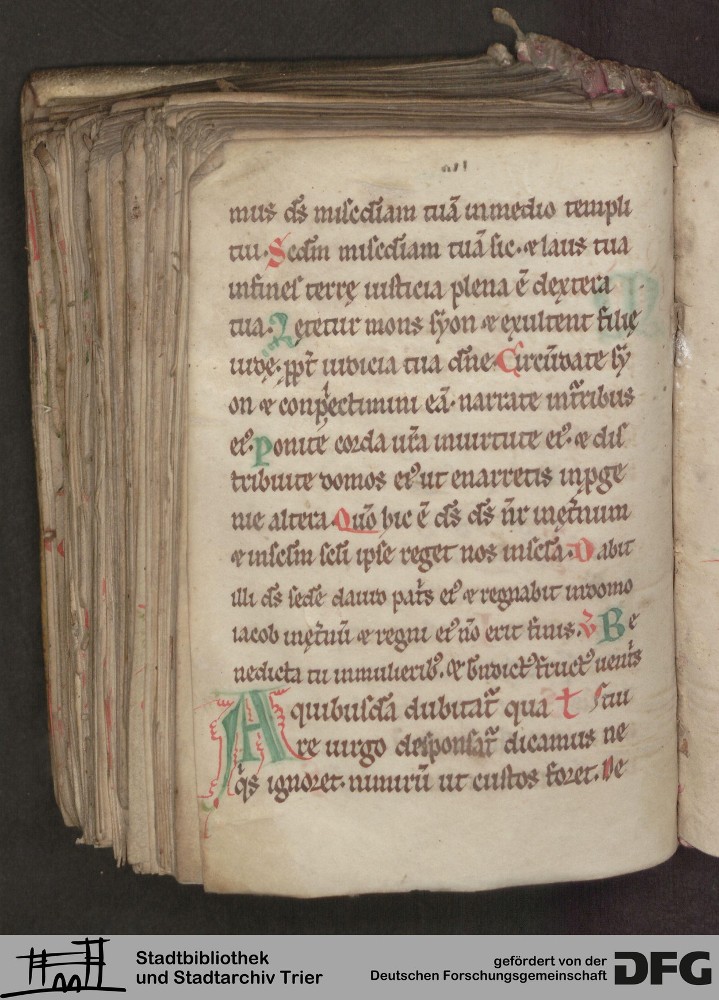 mus ds̄ misc̄diam tuā inmedio templi
tui. Sc̄dm misc̄diam tuā sic. & laus tua
infines terrę iusticia plena ē dextera
tua. Lętetur mons syon & exultent filię
iudę. ppt̄ iudicia tua dn̄e. Circūdate sy
on & conplectimini eā. narrate int̄ribus
ei᾽. Ponite corda ur̄a inuirtute ei᾽. & dis
tribuite domos ei᾽ ut enarretis inpge
nie altera. Quō hic ē ds̄ ds̄ nr̄ inęt̄num
& insc̄lm sc̄li ipse reget nos insc̄la. Dabit
illi ds̄ sedē dauid pat̄s ei᾽ & regnabit indomo
iacob inęt̄nū & regni ei᾽ nō erit finis. V Be
nedicta tu inmulierib᾽. & bn̄dict᾽ fruct᾽ uent̄s
A quibusdā dubitat̄ qua t stiu
re uirgo desponsat̄ dicamus ne
q̄s ignoret. nimirū ut custos foret. Ne
Stadtbibliothek
und Stadtarchiv Trier
gefördert von der
Deutschen Forschungsgemeinschaft
DFG